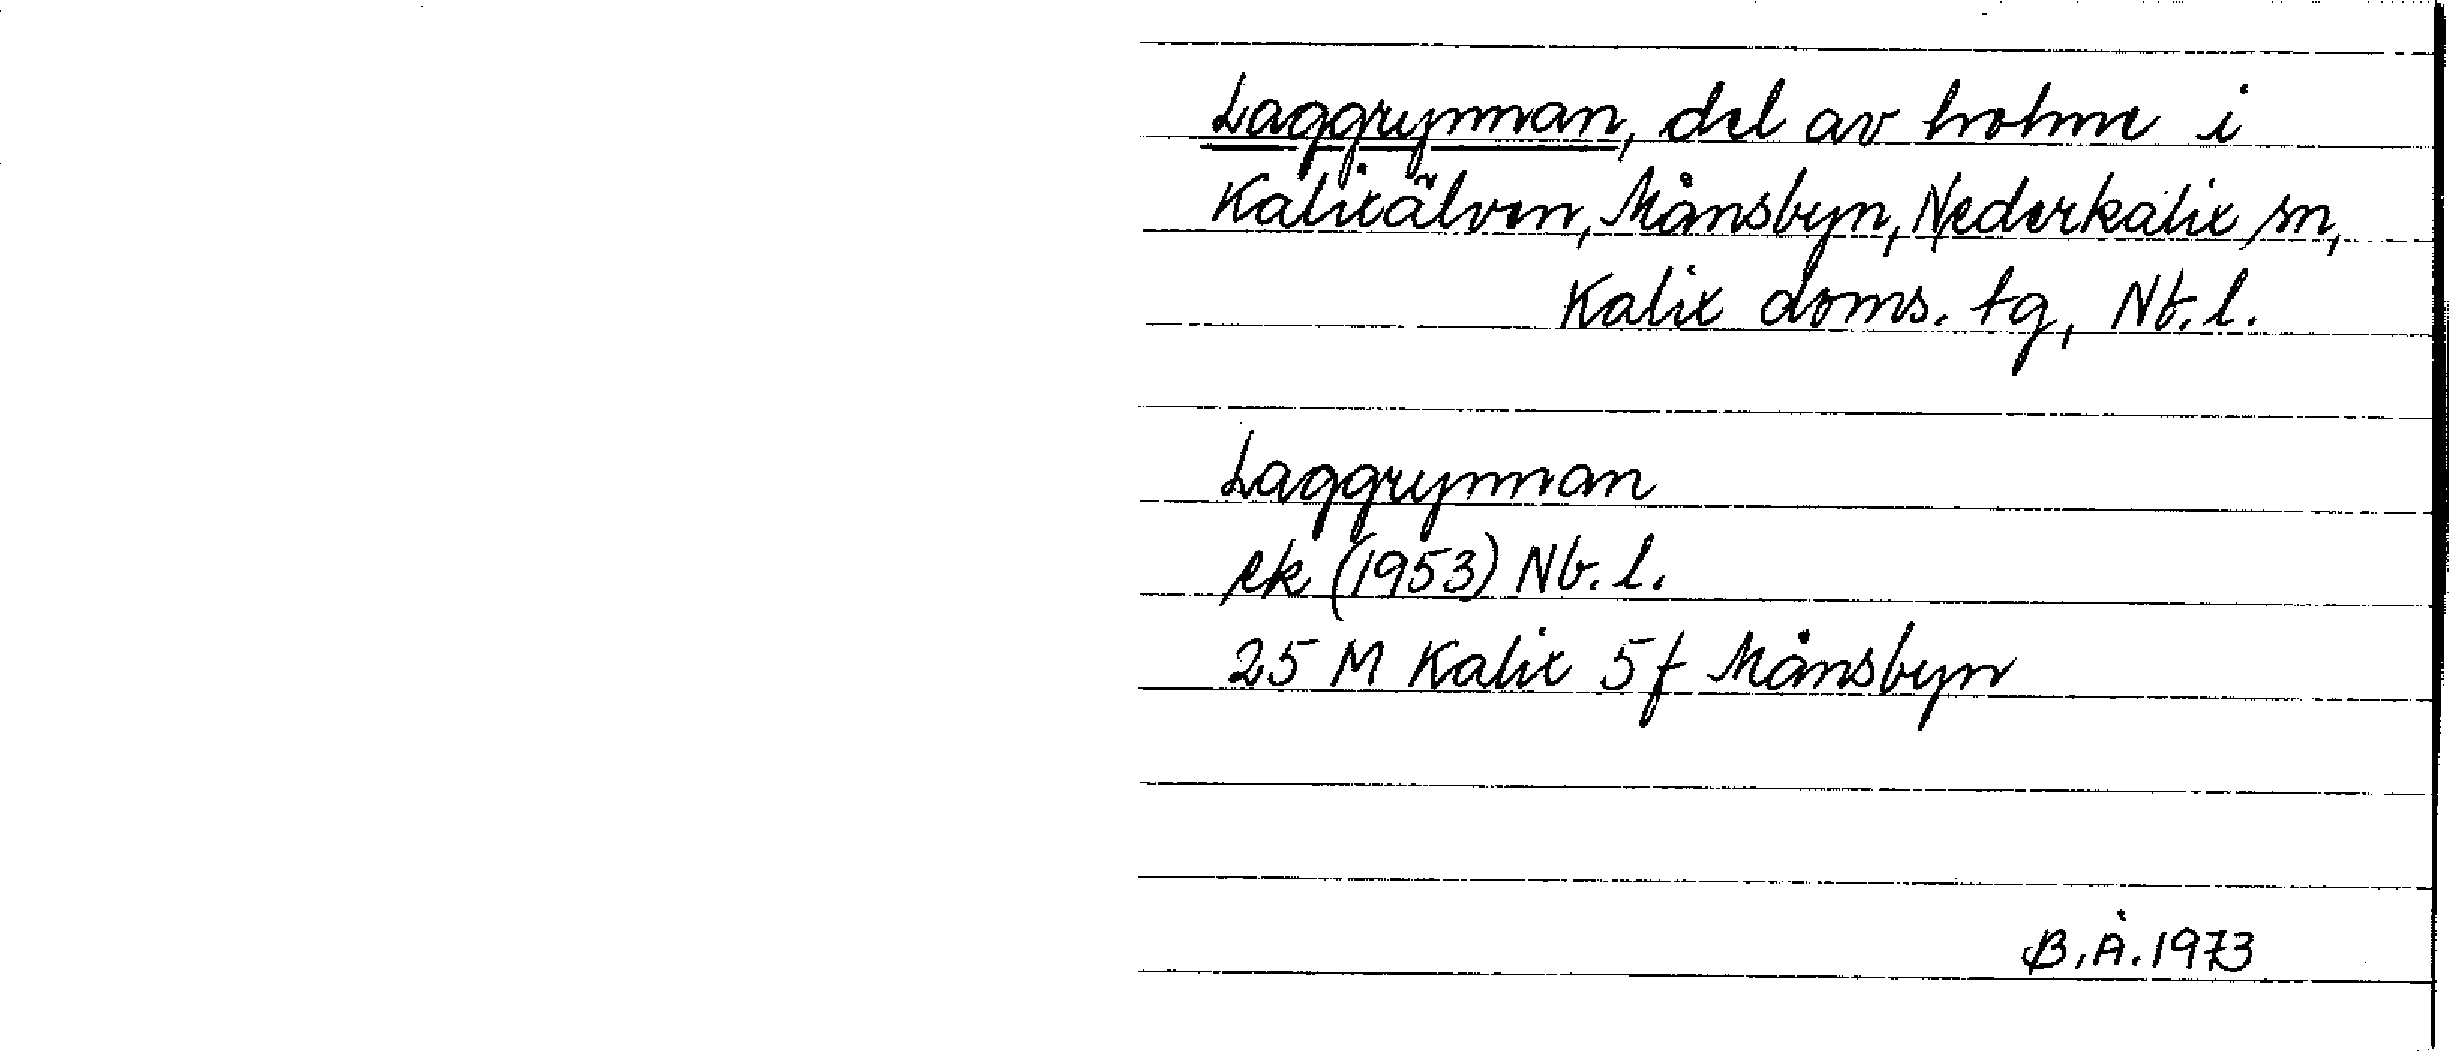 Laggrynnan, del av holme i
Kalixälven, Månsbyn, Nederkalix sn,
Kalix doms. tg, Nb. l.
Laggrynnan
ek (1953) Nb. l.
25 M Kalix 5f Månsbyn
B.Å. 1973